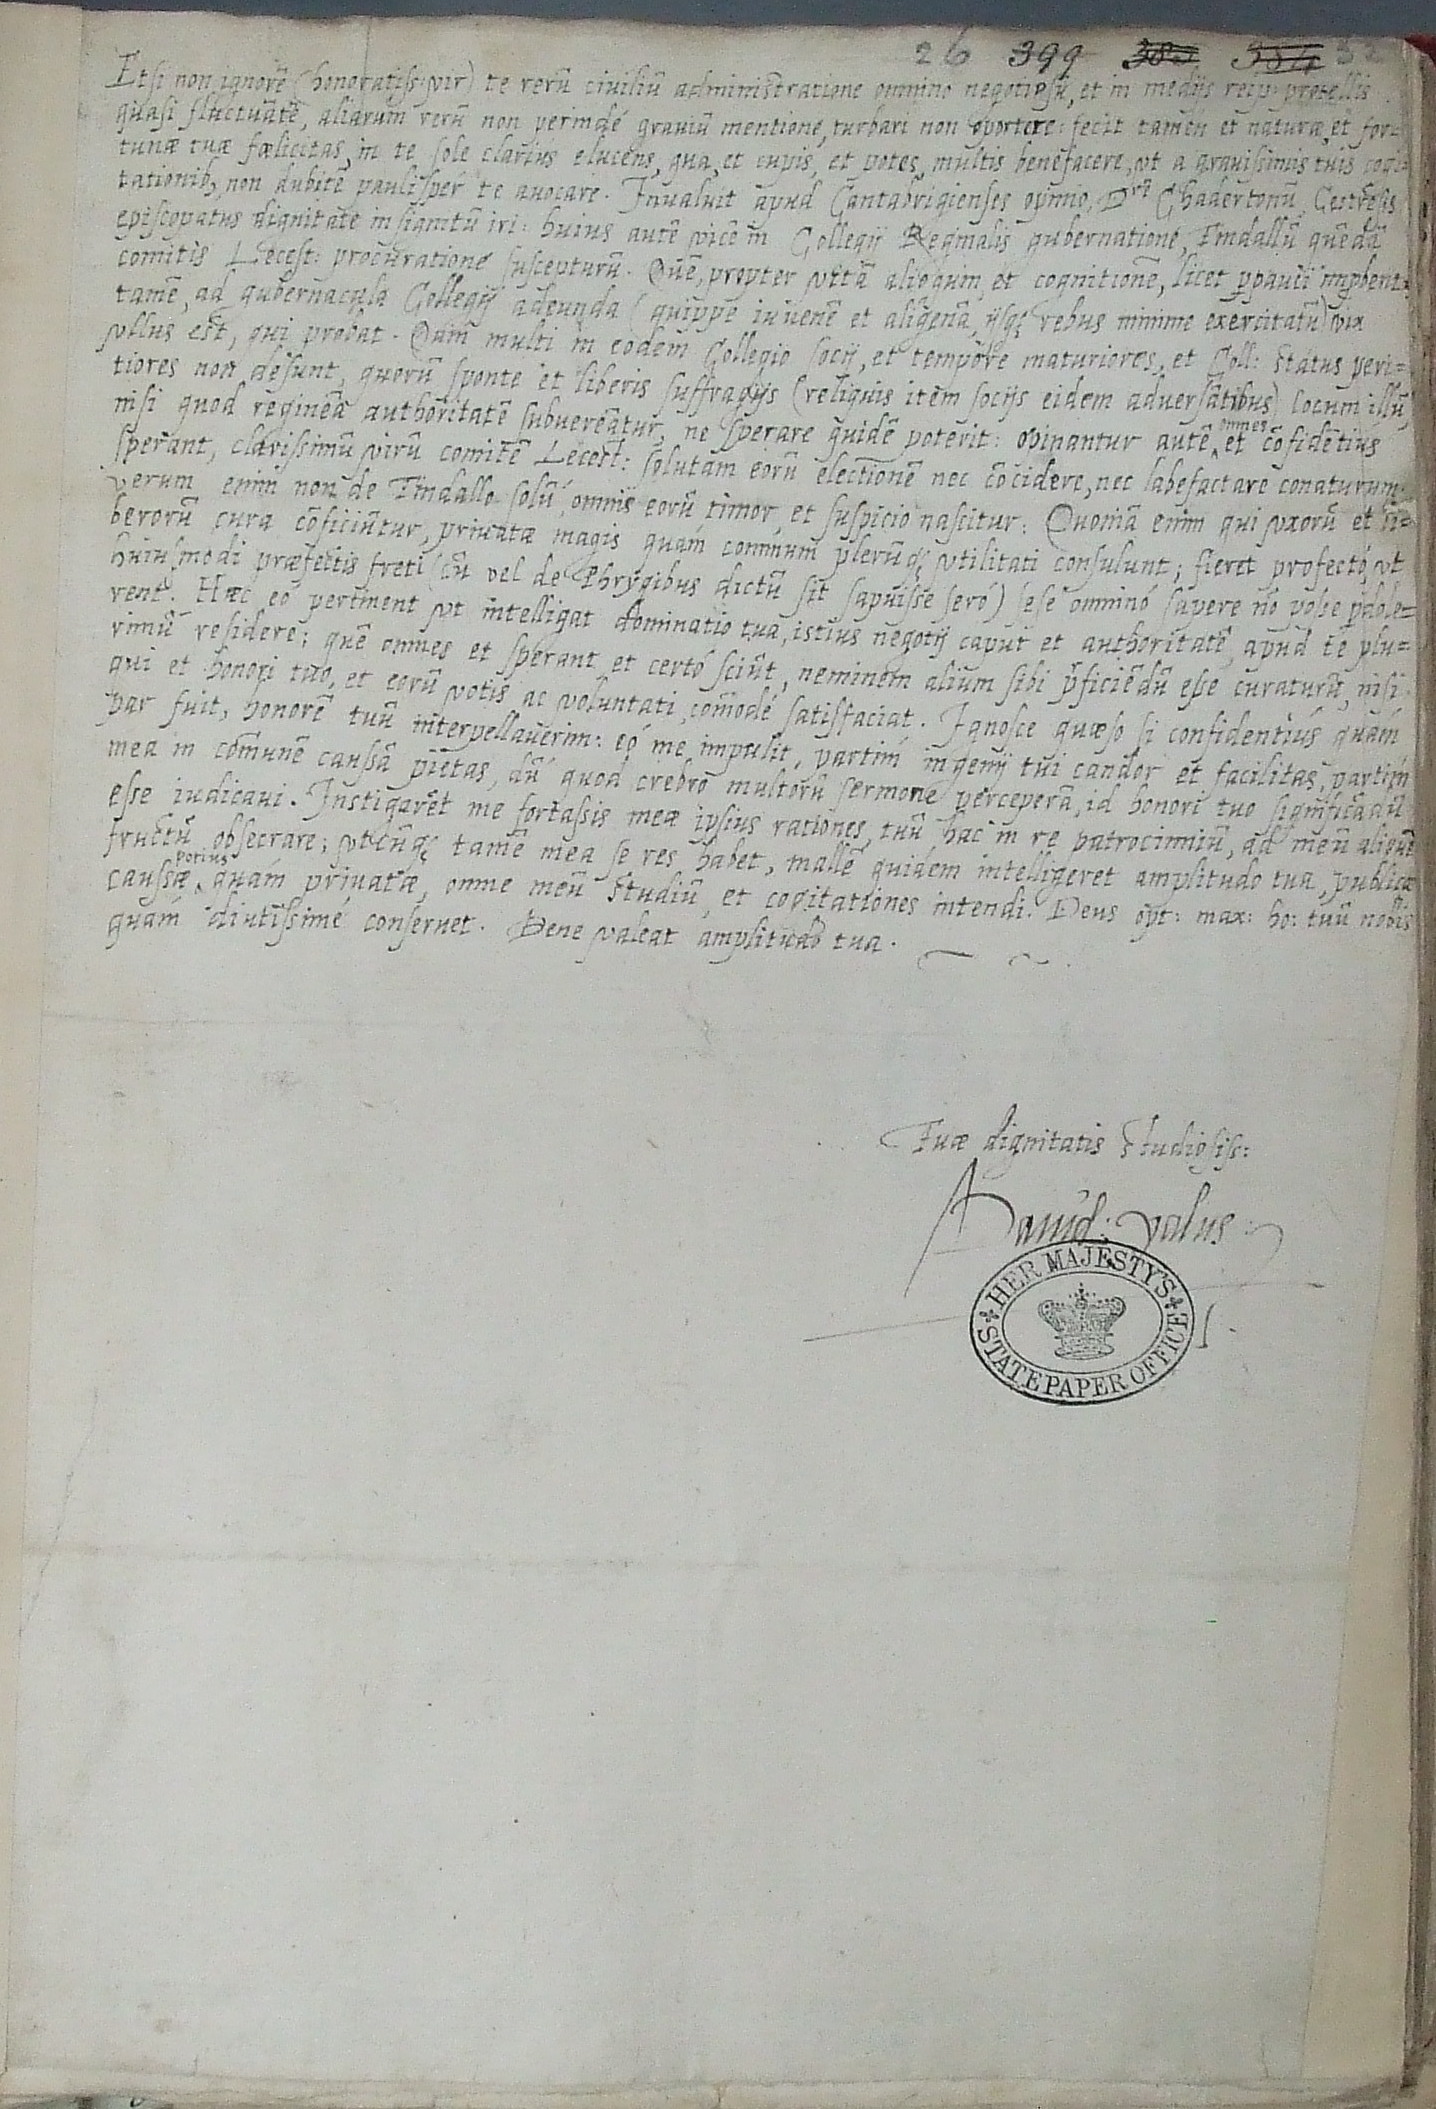 26 399 385 384 32
Etsi non ignorē (honoratiss: vir) te rerū ciuiliū administratione omnino negotiosū, et in medijs reip: procellis
quasi fluctuātē, aliarum rerū non perindé grauiū mentione, turbari non oportere: fecit tamen et naturæ, et for=
tunæ tuæ fœlicitas, in te sole clarius elucens, qua, et cupis, et potes, multis benefacere, vt a grauissimis tuis cogi=
tationib, non dubitē paulisper te auocare. Inualuit apud Cantabrigienses opinio, D Chadertonū, Cestrēsis
episcopatus dignitate insignitū iri: huius autē vicē in Collegij Reginalis gubernatione, Tindallū quēdā
comitis Lecest: procuratione suscepturū. Quē, propter vitā alioquin, et cognitionē, licet ꝑpauci improbent:
tamē, ad gubernacula Collegij adeunda (quippe iuuenē et aligenā, ijsqꝫ rebus minime exercitatū) vix
vllus est, qui probat. Quin multi in eodem Collegio socij, et tempore maturiores, et Coll: status peri=
tiores non desunt, quorū sponte et liberis suffragijs (reliquis item socijs eidem aduersātibus) locum illū,
nisi quod regineā authoritatē subuereātur, ne sperare quidē poterit: opinantur autē omnes et cōfidētius
sperant, clarissimū virū comitē Lecest: solutam eorū electionē nec cōcidere, nec labefactare conaturum:
verum enim non de Tindallo solū, omnis eorū timor, et suspicio nascitur: Quoniā enim qui vxorū et li=
berorū cura cōficiūtur, priuatæ magis quám commum plerūqꝫ vtilitati consulunt; fieret profectó, vt
huiusmodi præfectis freti (cū vel de Phrygibus dictū sit sapuisse seró) sese omninó sapere nō posse ꝑdole=
rent. Hæc eó pertinent vt intelligat dominatio tua, istius negotij caput et authoritatē, apud te plu=
rimū residere; quē omnes et sperant et certó sciūt, neminem alium sibi p̄ficiēdū esse curaturū, nisi
qui et honori tuo, et eorū votis ac voluntati, cōmodé satisfaciat. Ignosce quæso si confidentiús quám
par fuit, honorē tuū interpellauerim: eó me impulit, partim ingenij tui candor et facilitas, partim
mea in cōmunē caussā pietas, dū quod crebro multorū sermone perceperā, id honori tuo significādū
esse iudicaui. Instigaret me fortassis meæ ipsius rationes, tuū hac in re patrociniū, ad meū aliquē
fructū obsecrare; vtcūqꝫ tamē mea se res habet, mallē quidem intelligeret amplitudo tua, publicæ
caussæ potius quám priuatæ, omne meū studiū, et cogitationes intendi. Deus opt: max: ho: tuū nobis
quám diutissimé conseruet. Bene valeat amplitudo tua.
Tuæ dignitatis studiosiss:
Dauid: yalus
HER MAJESTY'S
STATE PAPER OFFICE